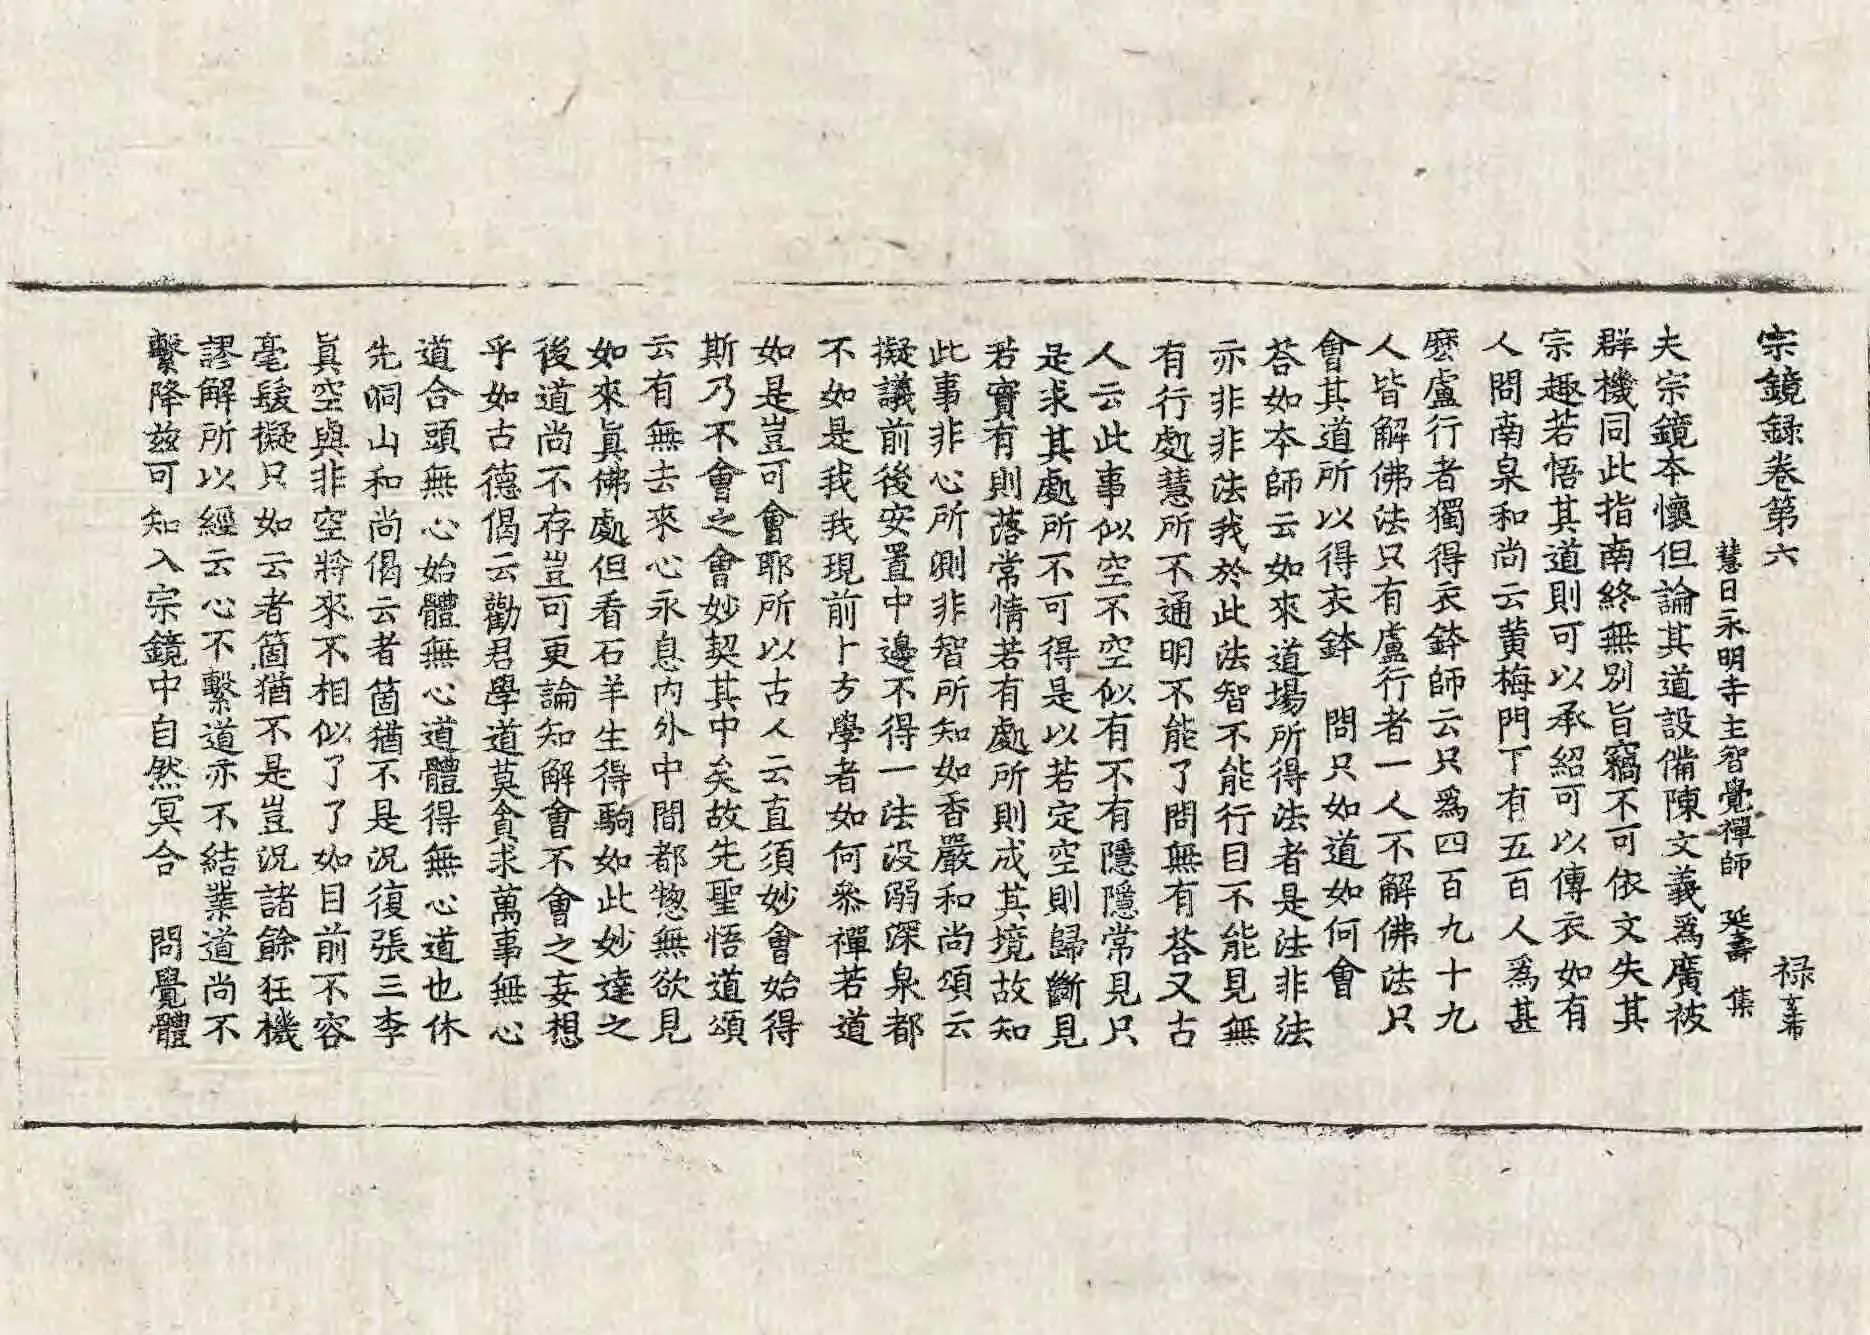 宗鏡録卷第六 禄
慧日永明寺主智覺禪師 延壽 集
夫宗鏡本懷但論其道設備陳文義爲廣被
群機同此指南終無別旨竊不可依文失其
宗趣若悟其道則可以承紹可以傳衣如有
人問南泉和尚云黄梅門下有五百人爲甚
麽盧行者獨得衣鉢師云只爲四百九十九
人皆解佛法只有盧行者一人不解佛法只
會其道所以得衣鉢 問只如道如何會
荅如本師云如來道場所得法者是法非法
亦非非法我於此法智不能行目不能見無
有行處慧所不通明不能了問無有荅又古
人云此事似空不空似有不有隱隱常見只
是求其處所不可得是以若定空則歸斷見
若實有則落常情若有處所則成其境故知
此事非心所測非智所知如香嚴和尚頌云
擬議前後安置中邊不得一法没溺深泉都
不如是我我現前卜方學者如何叅禪若道
如是豈可會耶所以古人云直須妙會始得
斯乃不會之會妙契其中矣故先聖悟道頌
云有無去來心永息内外中間都惣無欲見
如來眞佛處但看石羊生得駒如此妙達之
後道尚不存豈可更論知解會不會之妄想
乎如古德偈云勸君學道莫貪求萬事無心
道合頭無心始體無心道體得無心道也休
先洞山和尚偈云者箇猶不是況復張三李
眞空與非空將來不相似了了如目前不容
毫髮擬只如云者箇猶不是豈況諸餘狂機
謬解所以經云心不繫道亦不結業道尚不
繫降兹可知入宗鏡中自然冥合 問覺體